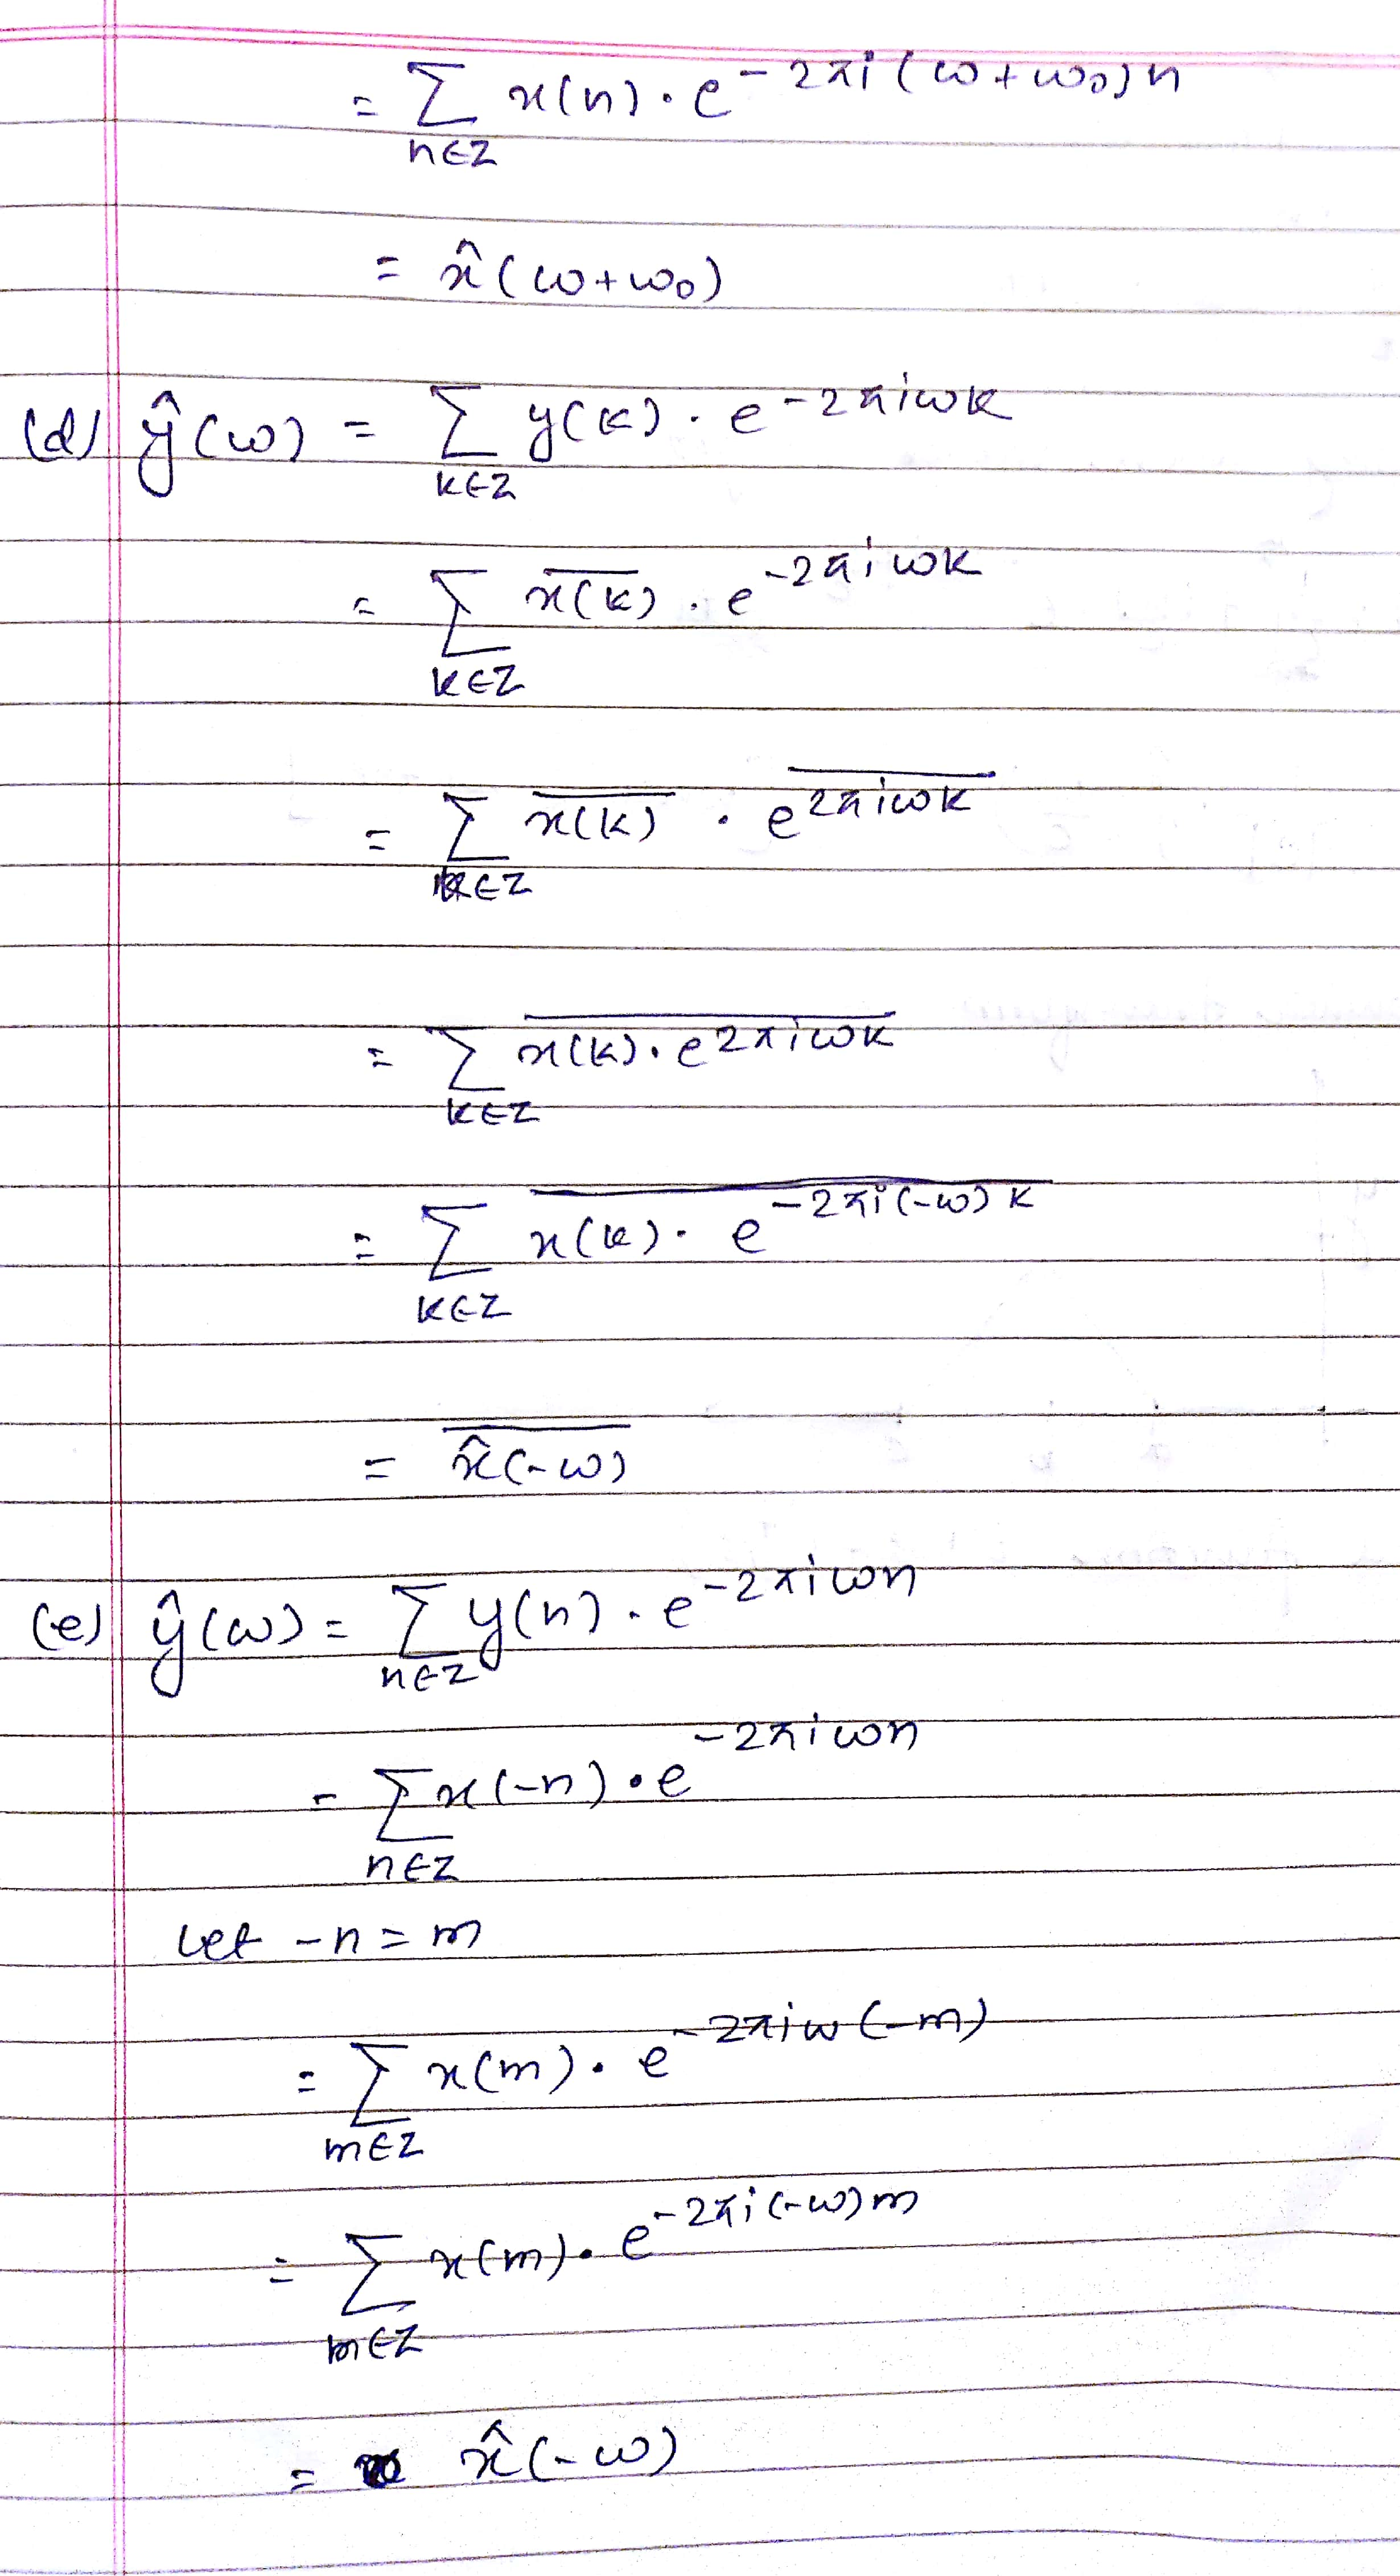 = ∑_{n∈Z} x(n) · e^{-2πi(ω+ω₀)n}
= x̂(ω+ω₀)
(d) ŷ(ω) = ∑_{k∈Z} y(k) · e^{-2πiωk}
= ∑_{k∈Z} \overline{x(k)} · e^{-2πiωk}
= ∑_{k∈Z} \overline{x(k)} · \overline{e^{2πiωk}}
= ∑_{k∈Z} \overline{x(k) · e^{2πiωk}}
= ∑_{k∈Z} \overline{x(k) · e^{-2πi(-ω)k}}
= \overline{x̂(-ω)}
(e) ŷ(ω) = ∑_{n∈Z} y(n) · e^{-2πiωn}
= ∑_{n∈Z} x(-n) · e^{-2πiωn}
Let -n = m
= ∑_{m∈Z} x(m) · e^{-2πiω(-m)}
= ∑_{m∈Z} x(m) · e^{-2πi(-ω)m}
= x̂(-ω)